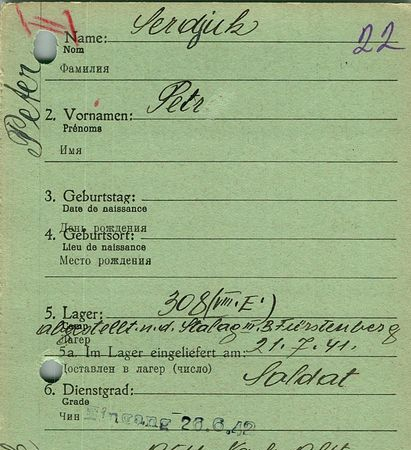 III
Name: Serdjuk
22
Nom
Фамилия
Peter
2. Vornamen: Petr
Prénoms
Имя
3. Geburtstag:
Date de naissance
День рождения
4. Geburtsort:
Lieu de naissance
Место рождения
5. Lager: 308 (VIII. E.)
abgestellt n. d. Stalag III. B Fürstenberg
Лагерь
5a. Im Lager eingeliefert am: 21. 7. 41.
Доставлен в лагерь (число)
6. Dienstgrad: Soldat
Grade
Чин Eingang 26.6.42